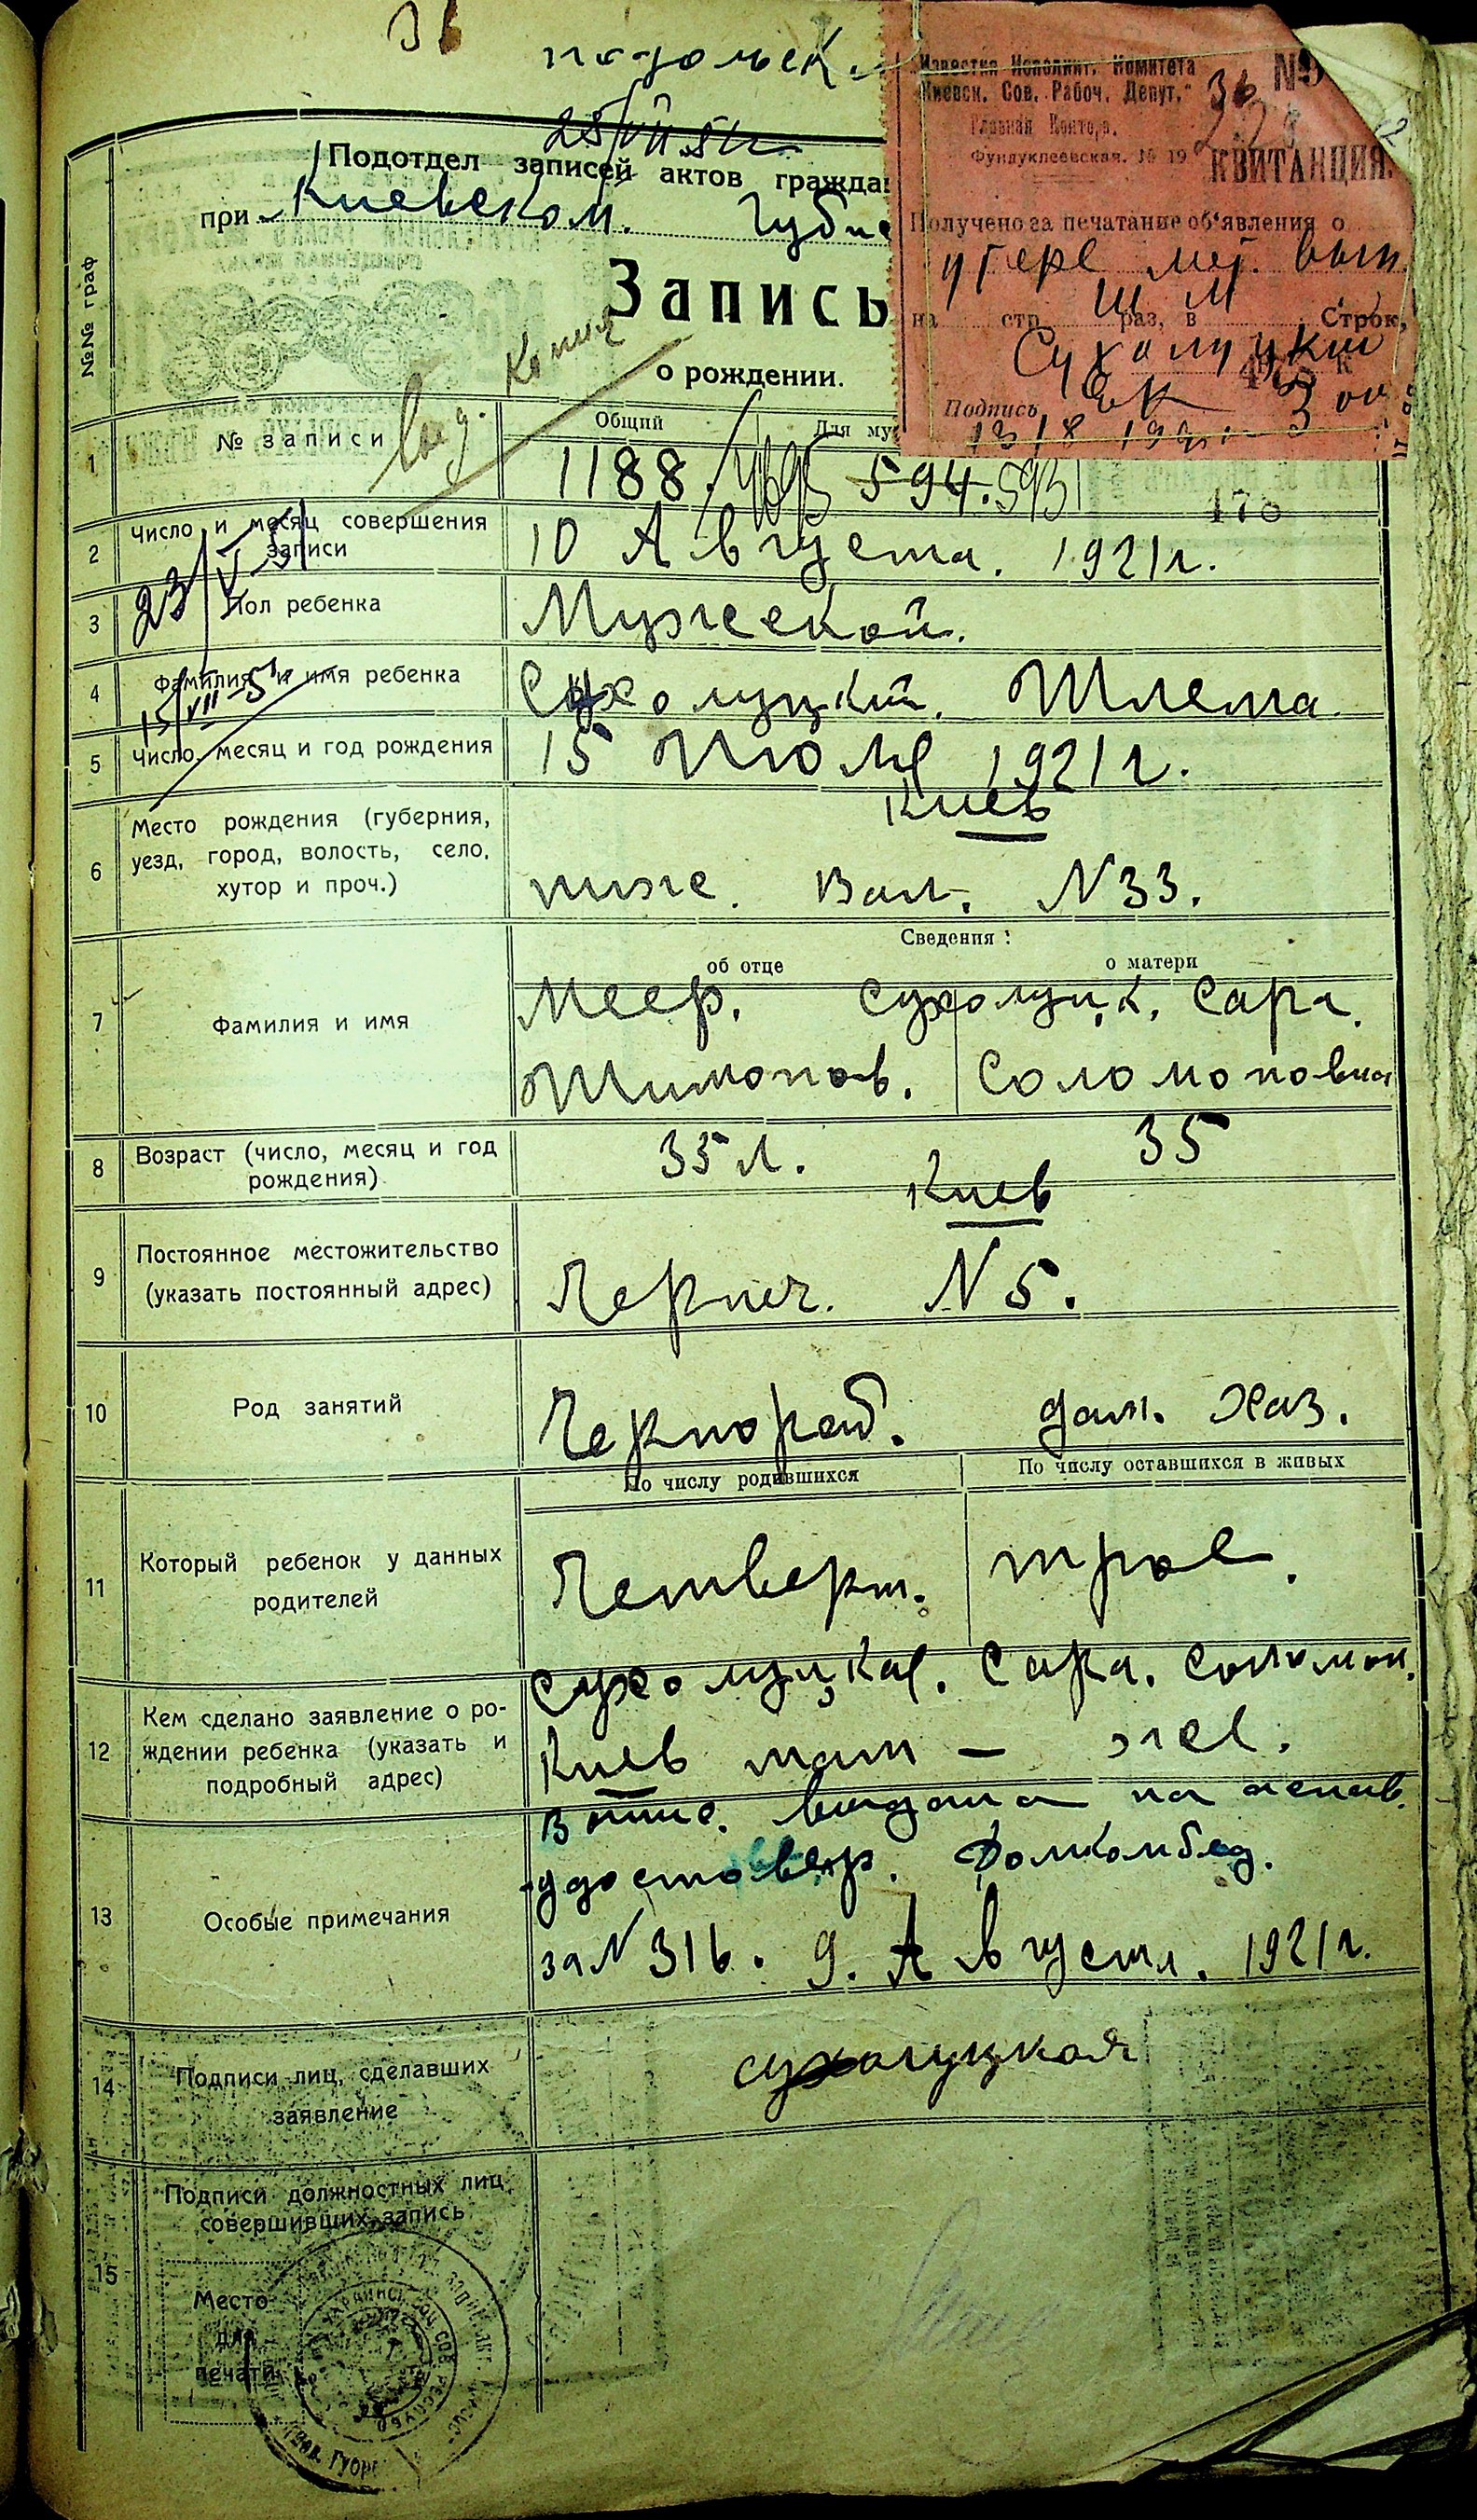 36
подольск.
25/VII.51г.
Подотдел записей актов гражда
при Киевском. Губис
№№ граф
Запись
о рождении.
Копия
Известия Исполнит. Комитета
Киевск. Сов. Рабоч. Депут."
Главная Контора.
Фундуклеевская. № 19
№
КВИТАНЦИЯ.
Получено за печатание об'явления о
утере мет. вып.
Ш М
на стр. раз, в Строк,
Сухолуцкий
Подпись
13/8 1921
1 № записи
Общий Для му
1188. 594. 593
2 Число и месяц совершения записи
10 Августа. 1921г.
23/V-51
3 Пол ребенка
Мужеской.
4 Фамилия и имя ребенка
Сухолуцкий. Шлема.
15/VII-51
5 Число, месяц и год рождения
15 Июля 1921г.
6 Место рождения (губерния,
уезд, город, волость, село,
хутор и проч.)
Киев
ниже. Вал. N33.
Сведения:
об отце о матери
7 Фамилия и имя
Меер. Сухолуцк. Сара.
Шимонов. Соломоновна
8 Возраст (число, месяц и год
рождения)
35 л. 35
9 Постоянное местожительство
(указать постоянный адрес)
Киев
Черниг. N 5.
10 Род занятий
Чернораб. дом. Хаз.
По числу родившихся По числу оставшихся в живых
11 Который ребенок у данных
родителей
Четверт. трое.
12 Кем сделано заявление о ро-
ждении ребенка (указать и
подробный адрес)
Сухолуцкая. Сара. Соломон.
Киев там – же.
13 Особые примечания
Выпис. выдана на основ.
удостовер. Домкомбед.
за N 316. 9. Августа. 1921г.
14 Подписи лиц, сделавших
заявление
сухолуцкая
15 Подписи должностных лиц,
совершивших запись
Место
для
печати